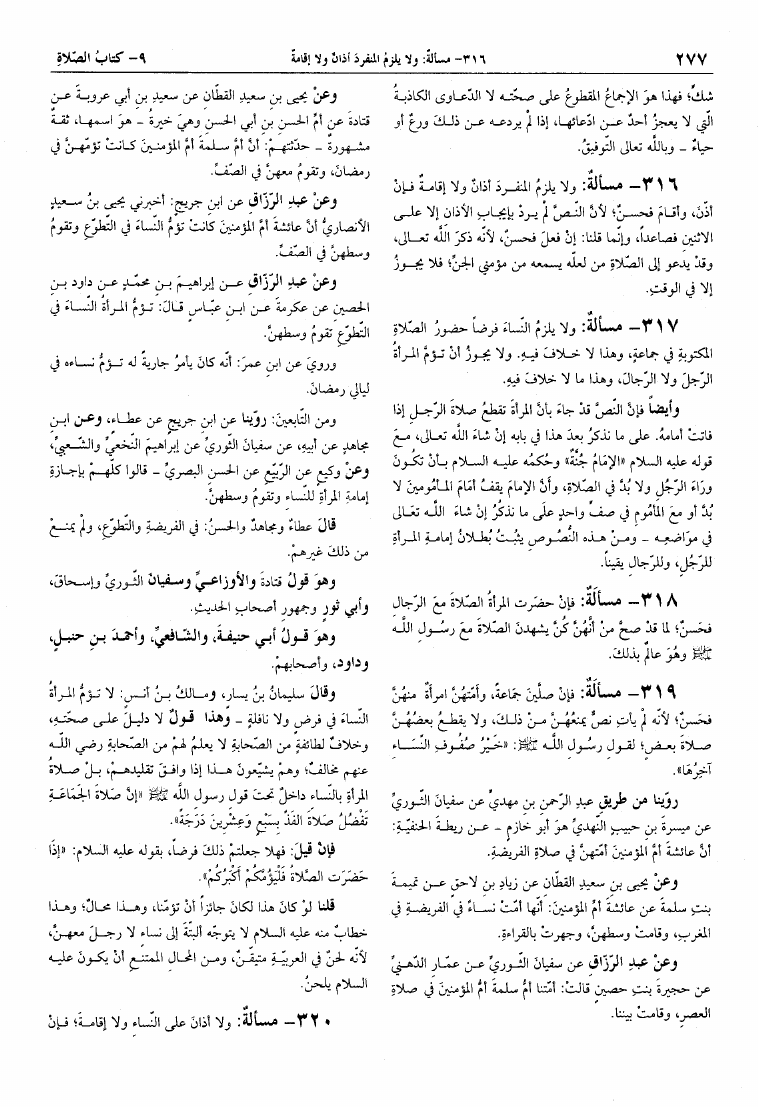 ٩- كتابُ الصّلاةِ
٣١٦- مسألةٌ: ولا يلزمُ المنفردَ أذانٌ ولا إقامةٌ
٢٧٧
شكٌ؛ فهذا هوَ الإجماعُ المقطوعُ على صحّتـه لا الدّعـاوى الكاذبـةُ
الّتي لا يعجزُ أحدٌ عـن ادّعائهـا، إذا لم يردعـه عـن ذلـكَ ورعٌ أو
حياءٌ - وباللّه تعالى التّوفيقُ.
٣١٦- مسألةٌ: ولا يلزمُ المنفـردَ أذانٌ ولا إقامـةٌ فـإنْ
أذّنَ، وأقـامَ فحسـنٌ؛ لأنّ النّـصّ لم يـردْ بإيجابِ الأذانِ إلا علـى
الاثنينِ فصاعداً، وإنّما قلنـا: إنْ فعلَ فحسنٌ، لأنّه ذكرَ اللّه تعـالى،
وقدْ يدعو إلى الصّلاةِ من لعلّه يسمعه من مؤمني الجنّ؛ فلا يجـوزُ
إلا في الوقتِ.
٣١٧- مسألةٌ: ولا يلزمُ النّساءَ فرضاً حضورُ الصّلاةِ
المكتوبةِ في جماعةٍ، وهذا لا خـلافَ فيـهِ. ولا يجـوزُ أنْ تـؤمّ المـرأةُ
الرّجلَ ولا الرّجالَ، وهذا ما لا خلافَ فيهِ.
وأيضاً فإنّ النّصّ قدْ جاءَ بأنّ المرأةَ تقطعُ صلاةَ الرّجـلِ إذا
فاتتْ أمامهُ. على ما نذكرُ بعدَ هذا في بابه إنْ شاءَ اللّه تعـالى، مـعَ
قوله عليه السلام «الإِمَامُ جُنَّةٌ» وحُكمُه عليـه السـلام بـأنْ تكُـونَ
ورَاءَ الرّجُلِ ولا بُدّ في الصّلاةِ، وأنّ الإمامَ يقفُ أمَامَ المـأمُومينَ لا
بُدّ أو مـعَ المأمُومِ في صفٍ واحدٍ علَى ما نذكُرُ إنْ شاءَ اللّـه تعَـالَى
في موَاضعِـه - ومـنْ هـذه النُّصُـوصِ يثبُـتُ بُطـلانُ إمامـةِ المـرأةِ
للرّجُلِ، وللرّجالِ يقيناً.
٣١٨- مسألَةٌ: فإنْ حضَرت المرأةُ الصّلاةَ مـعَ الرّجَالِ
فحَسنٌ؛ لما قد صحّ منْ أنّهُنّ كُنّ يشهدنَ الصّلاةَ مع رسُـولِ اللّـه
ﷺ وهُوَ عالِمٌ بذلكَ.
٣١٩- مسألَةٌ: فإنْ صلّينَ جَماعةً، وأمّتهُنّ امرأةٌ منهُنّ
فحَسنٌ؛ لأنّه لم يأتِ نصٌّ يمنَعُهُـنّ مـنْ ذلـكَ، ولا يقطَـعُ بعضُهُـنّ
صلاةَ بعضٍ؛ لقولِ رسُولِ اللّـه ﷺ: «خَـيْرُ صُفُـوفِ النِّسَـاءِ
آخِرُهَا».
رؤينا من طريقِ عبدِ الرّحمنِ بنِ مهديّ عن سفيانَ الثّوريّ
عن ميسرةَ بنِ حبيبٍ النّهديّ هوَ أبو خازمٍ - عـن ريطةَ الحنفيّـةِ:
أنّ عائشةَ أمّ المؤمنينَ أمّتهنّ في صلاةِ الفريضةِ.
وعنْ يحيى بنِ سعيدٍ القطّانِ عن زيادِ بنِ لاحقٍ عـن تميمـةَ
بنـتِ سلمةَ عن عائشةَ أمّ المؤمنينَ: أنّهـا أمّتْ نسـاءً في الفريضةِ في
المغربِ، وقامتْ وسطهنّ، وجهرتْ بالقراءةِ.
وعنْ عبدِ الرّزّاقِ عن سفيانَ الثّـوريّ عـن عمّـارٍ الدّهـنيّ
عن حجيرةَ بنتِ حصينٍ قالتْ: أمّتنا أمّ سلمةَ أمّ المؤمنينَ في صلاةِ
العصرِ، وقامتْ بيننا.
وعنْ يحيى بنِ سعيدٍ القطّانِ عن سعيدِ بنِ أبي عروبـةَ عـن
قتادةَ عن أمّ الحسنِ بنِ أبي الحسنِ وهيَ خيرةُ - هوَ اسمها، ثقـةٌ
مشـهورةٌ - حدّثتهـمْ: أنّ أمّ سـلمةَ أمّ المؤمنـينَ كـانتْ تؤمّهـنّ في
رمضانَ، وتقومُ معهنّ في الصّفّ.
وعنْ عبدِ الرّزّاقِ عن ابنِ جريجٍ: أخبرني يحيى بنُ سـعيدٍ
الأنصاريُّ أنّ عائشةَ أمّ المؤمنينَ كانتْ تؤمّ النّساءَ في التّطوّعِ وتقومُ
وسطهنّ في الصّفّ.
وعنْ عبدِ الرّزّاقِ عـن إبراهيـمَ بـنِ محمّـدٍ عـن داودَ بـنِ
الحصينِ عن عكرمةَ عـن ابـنِ عبّـاسٍ قـالَ: تـؤمّ المـرأةُ النّسـاءَ في
التّطوّعِ تقومُ وسطهنّ.
ورويَ عن ابنِ عمرَ: أنّه كانَ يأمرُ جاريةً له تـؤمّ نسـاءه في
ليالي رمضانَ.
ومن التّابعينَ: روّينا عن ابنِ جريجٍ عن عطـاءٍ، وعـن ابـنِ
مجاهدٍ عن أبيهِ، عن سفيانَ الثّوريِّ عن إبراهيمَ النّخعيِّ والشّـعبيِّ،
وعنْ وكيعٍ عن الرّبيّعِ عن الحسنِ البصريّ - قالوا كلّهـمْ بإجازةِ
إمامةِ المرأةِ للنّساءِ وتقومُ وسطهنّ.
قالَ عطاءٌ ومجاهدٌ والحسنُ: في الفريضةِ والتّطوّعِ، ولْم يمنـعْ
من ذلكَ غيرهمْ.
وهوَ قولُ قتادةَ والأوزاعـيِّ وسـفيانَ الثّـوريّ وإسـحاقَ،
وأبي ثورٍ وجمهورِ أصحابِ الحديثِ.
وهوَ قـولُ أبـي حنيفـةَ، والشّـافعيِّ، وأحمـدَ بـنِ حنبـلٍ،
وداود، وأصحابهمْ.
وقالَ سليمانُ بنُ يسارٍ، ومـالكُ بـنُ أنـسٍ: لا تـؤمّ المـرأةُ
النّساءَ في فرضٍ ولا نافلةٍ - وهذا قولٌ لا دليـلَ علـى صحّتـهِ،
وخلافٌ لطائفةٍ من الصّحابةِ لا يعلمُ لهمْ من الصّحابةِ رضي اللّـه
عنهم مخالفٌ؛ وهـمْ يشيّعونَ هـذا إذا وافـقَ تقليدهـمْ، بـلْ صلاةُ
المرأةِ بالنّساءِ داخلٌ تحتَ قولِ رسولِ اللّه ﷺ «إنَّ صَلاةَ الجَمَاعَـةِ
تَفْضُلُ صَلاةَ الفَذِّ بِسَبْعٍ وَعِشْرِينَ دَرَجَةً».
فإنْ قيلَ: فهلا جعلتمْ ذلكَ فرضاً، بقوله عليه السلام: «إذَا
حَضَرَتِ الصَّلاةُ فَلْيَؤُمَّكُمْ أَكْبَرُكُمْ».
قلنا لوْ كانَ هذا لكانَ جائزاً أنْ تؤمّنا، وهـذا محـالٌ؛ وهـذا
خطابٌ منه عليه السلام لا يتوجّه ألبتّةَ إلى نساءٍ لا رجـلَ معهـنّ،
لأنّه لحنٌ في العربيّـةِ متيقّـنٌ، ومـن المحـالِ الممتنـعِ أنْ يكـونَ عليـه
السلام يلحنُ.
٣٢٠- مسألةٌ: ولا أذانَ على النّسـاءِ ولا إقامـةَ؛ فـإنْ